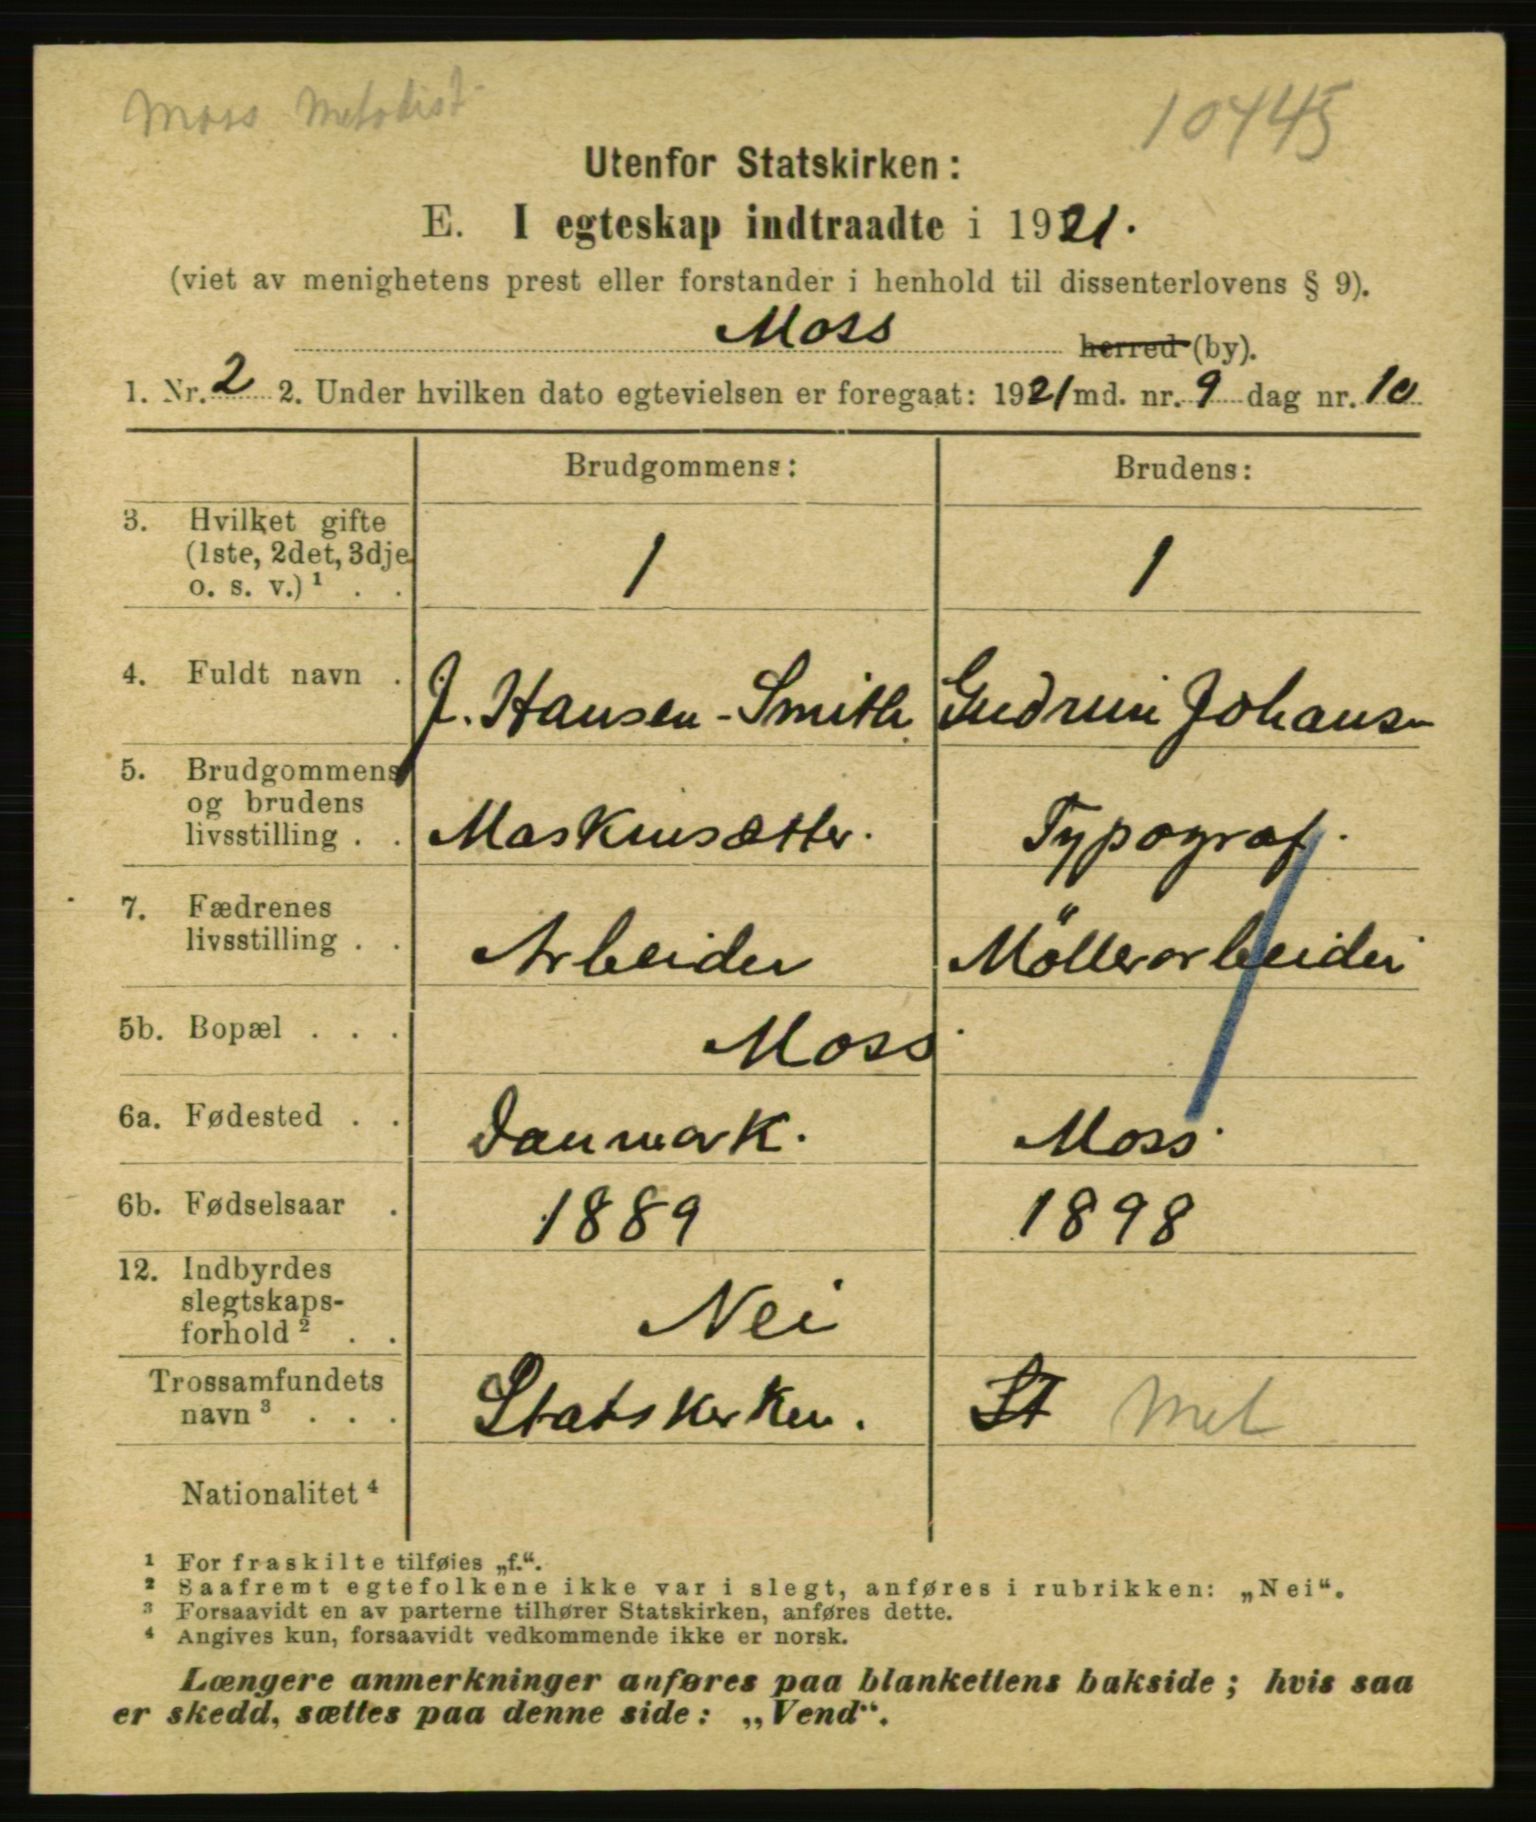 Moss Metodist
10445
Utenfor Statskirken:
E. I egteskap indtraadte i 1921.
(viet av menighetens prest eller forstander i henhold til dissenterlovens § 9).
Moss herred (by).
1. Nr. 2 2. Under hvilken dato egtevielsen er foregaat: 1921 md. nr. 9 dag nr. 10
Brudgommens: Brudens:
3. Hvilket gifte
(1ste, 2det, 3dje
o. s. v.) ¹ . . 1 1
4. Fuldt navn . J. Hansen-Smith Gudrun Johansen
5. Brudgommens
og brudens
livsstilling . . Maskinsætter. Typograf.
7. Fædrenes
livsstilling . . Arbeider Möllerarbeider
5b. Bopæl . . . Moss
6a. Fødested . . Danmark. Moss
6b. Fødselsaar . 1889 1898
12. Indbyrdes
slegtskaps-
forhold ² . . Nei
Trossamfundets
navn ³ . . . Statskirken. St Met
Nationalitet ⁴
¹ For fraskilte tilføies „f.“.
² Saafremt egtefolkene ikke var i slegt, anføres i rubrikken: „Nei“.
³ Forsaavidt en av parterne tilhører Statskirken, anføres dette.
⁴ Angives kun, forsaavidt vedkommende ikke er norsk.
Længere anmerkninger anføres paa blankettens bakside; hvis saa
er skedd, sættes paa denne side: „Vend“.